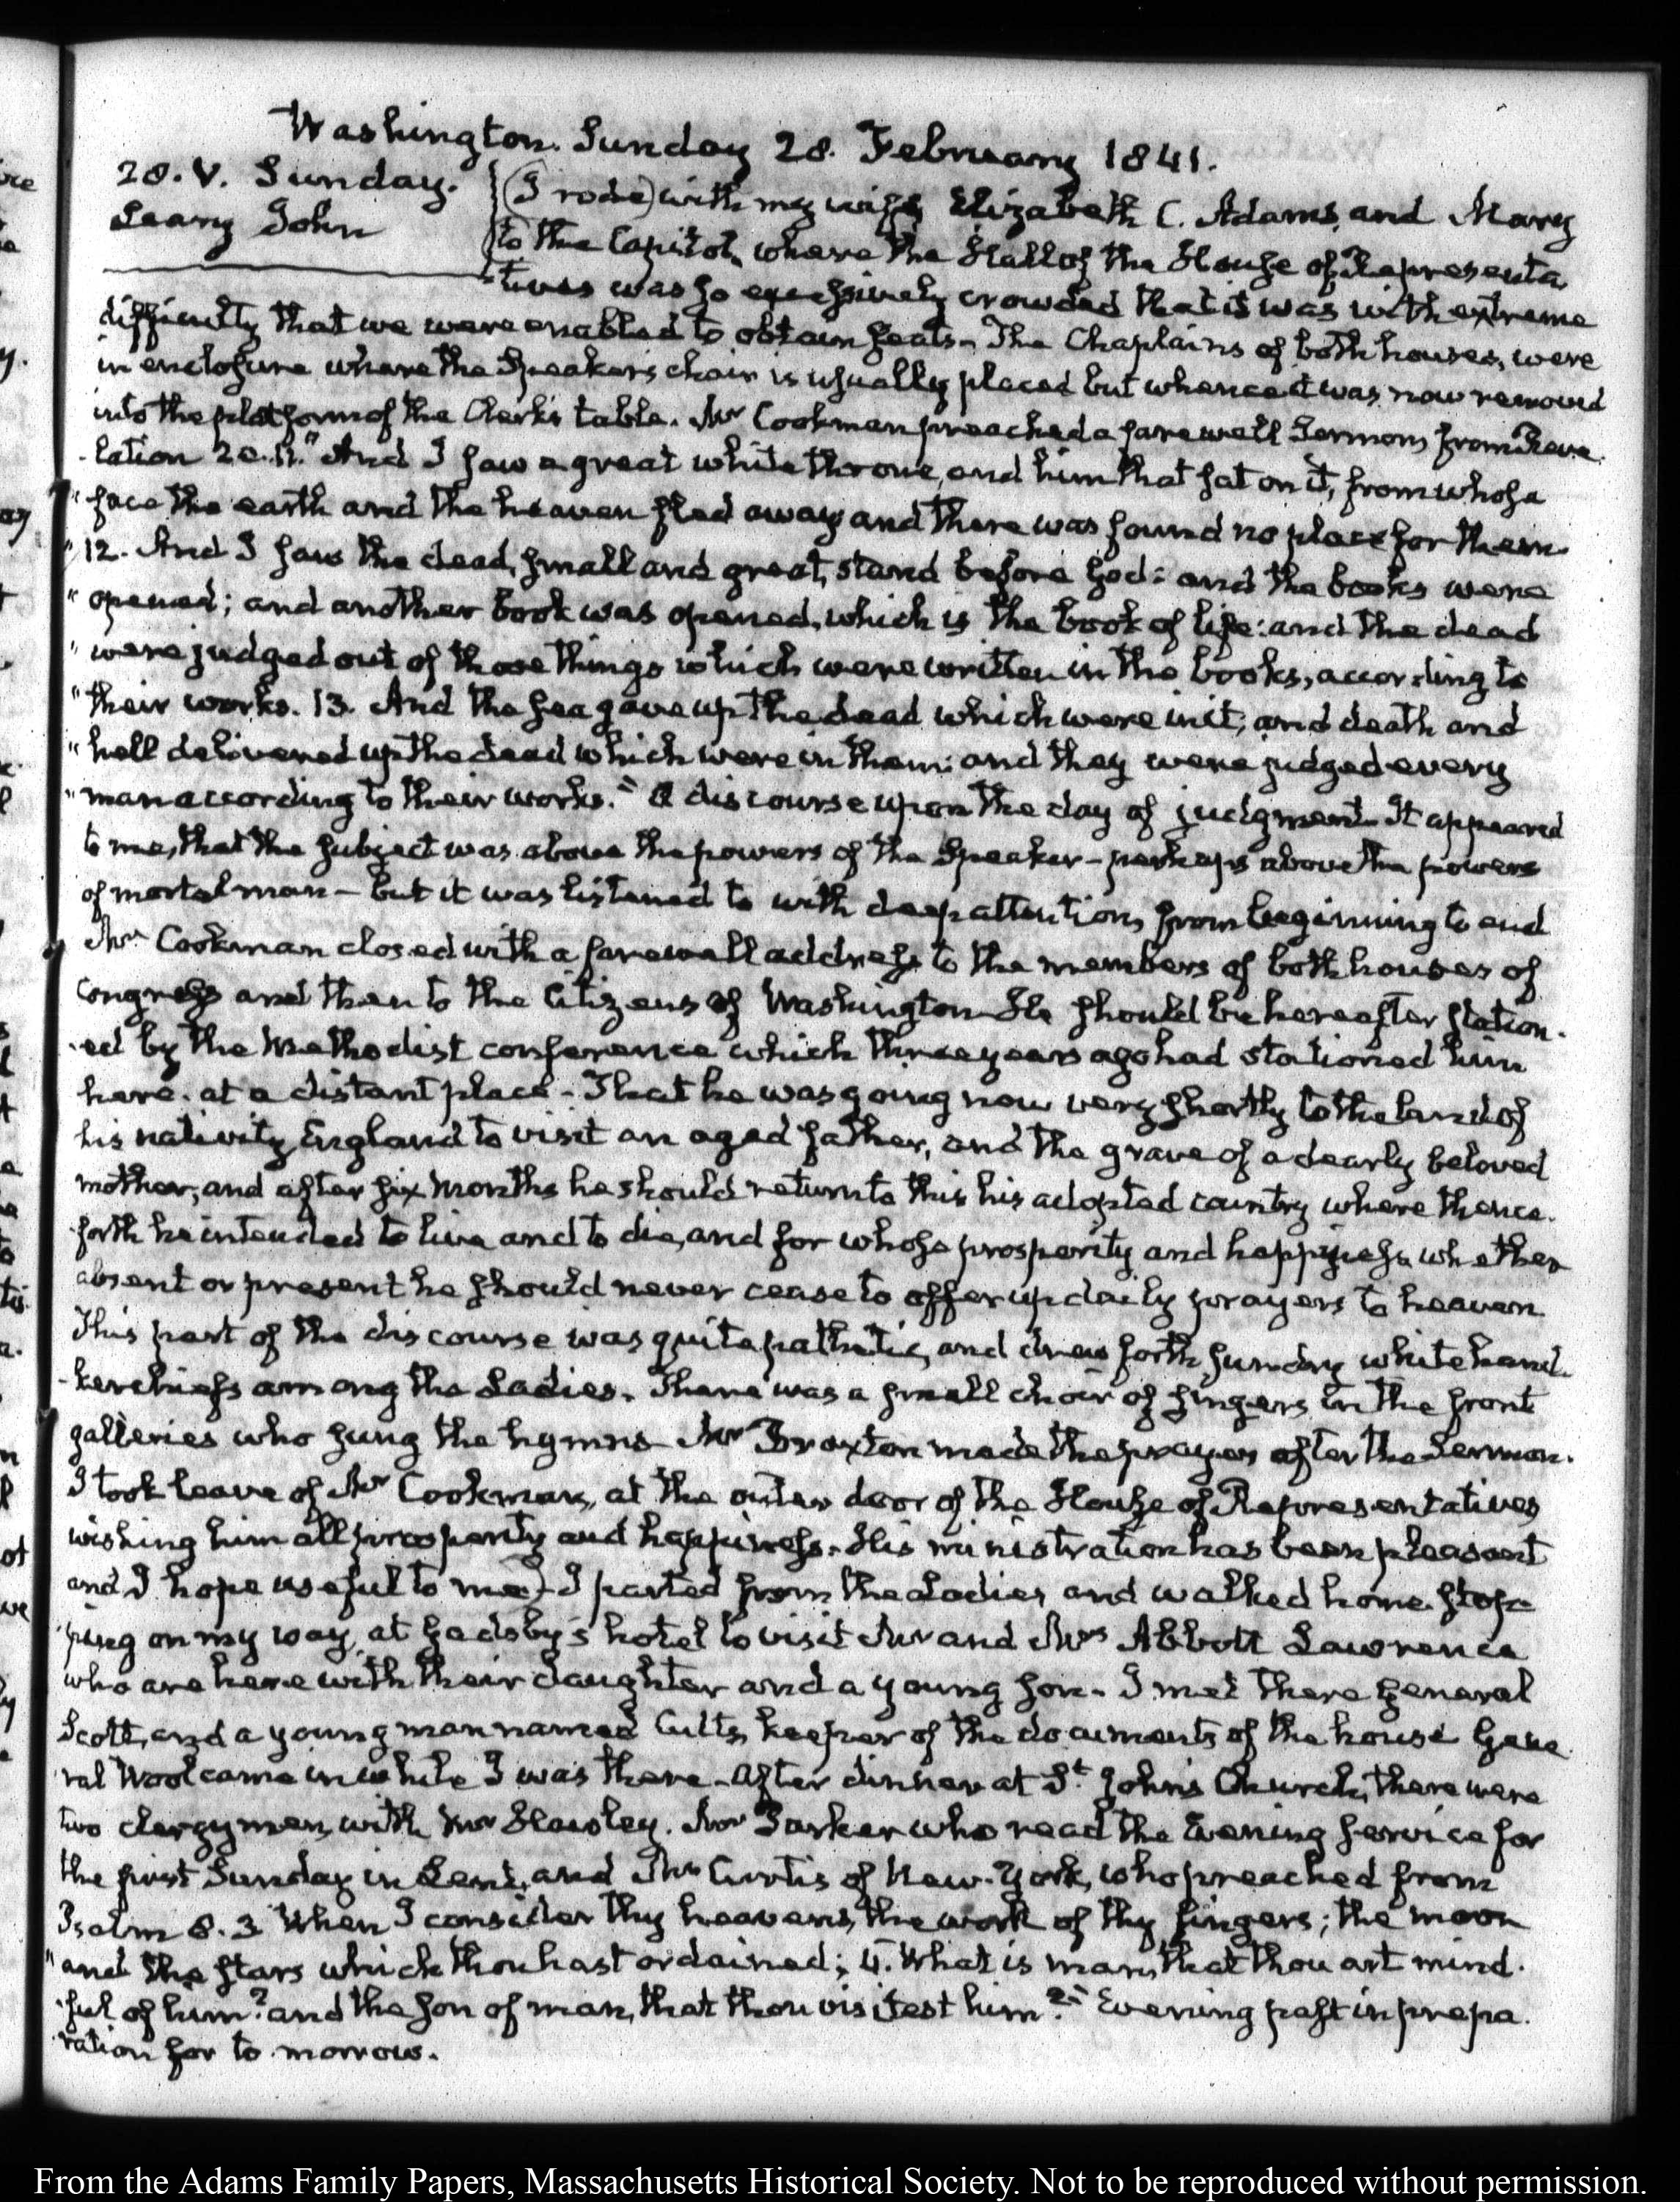 Washington. Sunday 28. February 1841.
28. V. Sunday.
Leary John
(I rode) with my wife, Elizabeth C. Adams, and Mary
to the Capitol, where the Hall of the House of Representa
-tives was so excessively crowded that it was with extreme
difficulty that we were enabled to obtain seats. The Chaplains of both houses, were
in enclosure where the Speaker's chair is usually placed but whence it was now removed
into the platform of the Clerk's table. Mr Cookman preached a farewell Sermon, from Reve
-lation 20.11. "And I saw a great white throne, and him that sat on it, from whose
"face the earth and the heaven fled away and there was found no place for them
"12. And I saw the dead, small and great, stand before God: and the books were
"opened; and another book was opened, which is the book of life: and the dead
"were judged out of those things which were written in the books, according to
"their works. 13. And the sea gave up the dead which were in it; and death and
"hell delivered up the dead which were in them: and they were judged every
"man according to their works." A discourse upon the day of judgment. It appeared
to me, that the subject was above the powers of the Speaker – perhaps above the powers
of mortal man – but it was listened to with deep attention, from beginning to end
Mr Cookman closed with a farewell address to the members of both houses of
Congress and then to the Citizens of Washington. He should be hereafter station-
-ed by the Methodist conference which three years ago had stationed him
here. at a distant place – That he was going now very shortly to the land of
his nativity, England to visit an aged father, and the grave of a dearly beloved
mother, and after six months he should return to this his adopted country where thence-
-forth he intended to live and to die, and for whose prosperity and happiness, whether
absent or present he should never cease to offer up daily prayers to heaven
This part of the discourse was quite pathetic, and drew forth sundry white hand-
-kerchiefs among the Ladies. There was a small choir of singers in the front
galleries who sung the hymns – Mr Braxton made the prayer after the Sermon.
I took leave of Mr Cookman, at the outer door of the House of Representatives
wishing him all prosperity and happiness. His ministration has been pleasant
and I hope useful to me) – I parted from the Ladies and walked home stop-
-ping on my way, at Gadsby's hotel to visit Mr and Mrs Abbott Lawrence
who are here with their daughter and a young son. I met there General
Scott, and a young man named Cutts, keeper of the documents of the house Gene
-ral Wool came in while I was there. After dinner at St. John's Church, there were
two clergymen, with Mr Hawley. Mr Parker who read the Evening service for
the first Sunday in Lent, and Mr Curtis of New-York, who preached from
Psalm 8.3 When I consider thy heavens, the work of thy fingers; the moon
"and the stars which thou hast ordained; 4. What is man, that thou art mind-
-ful of him? and the son of man, that thou visitest him?" Evening past in prepa-
-ration for to morrow.
From the Adams Family Papers, Massachusetts Historical Society. Not to be reproduced without permission.